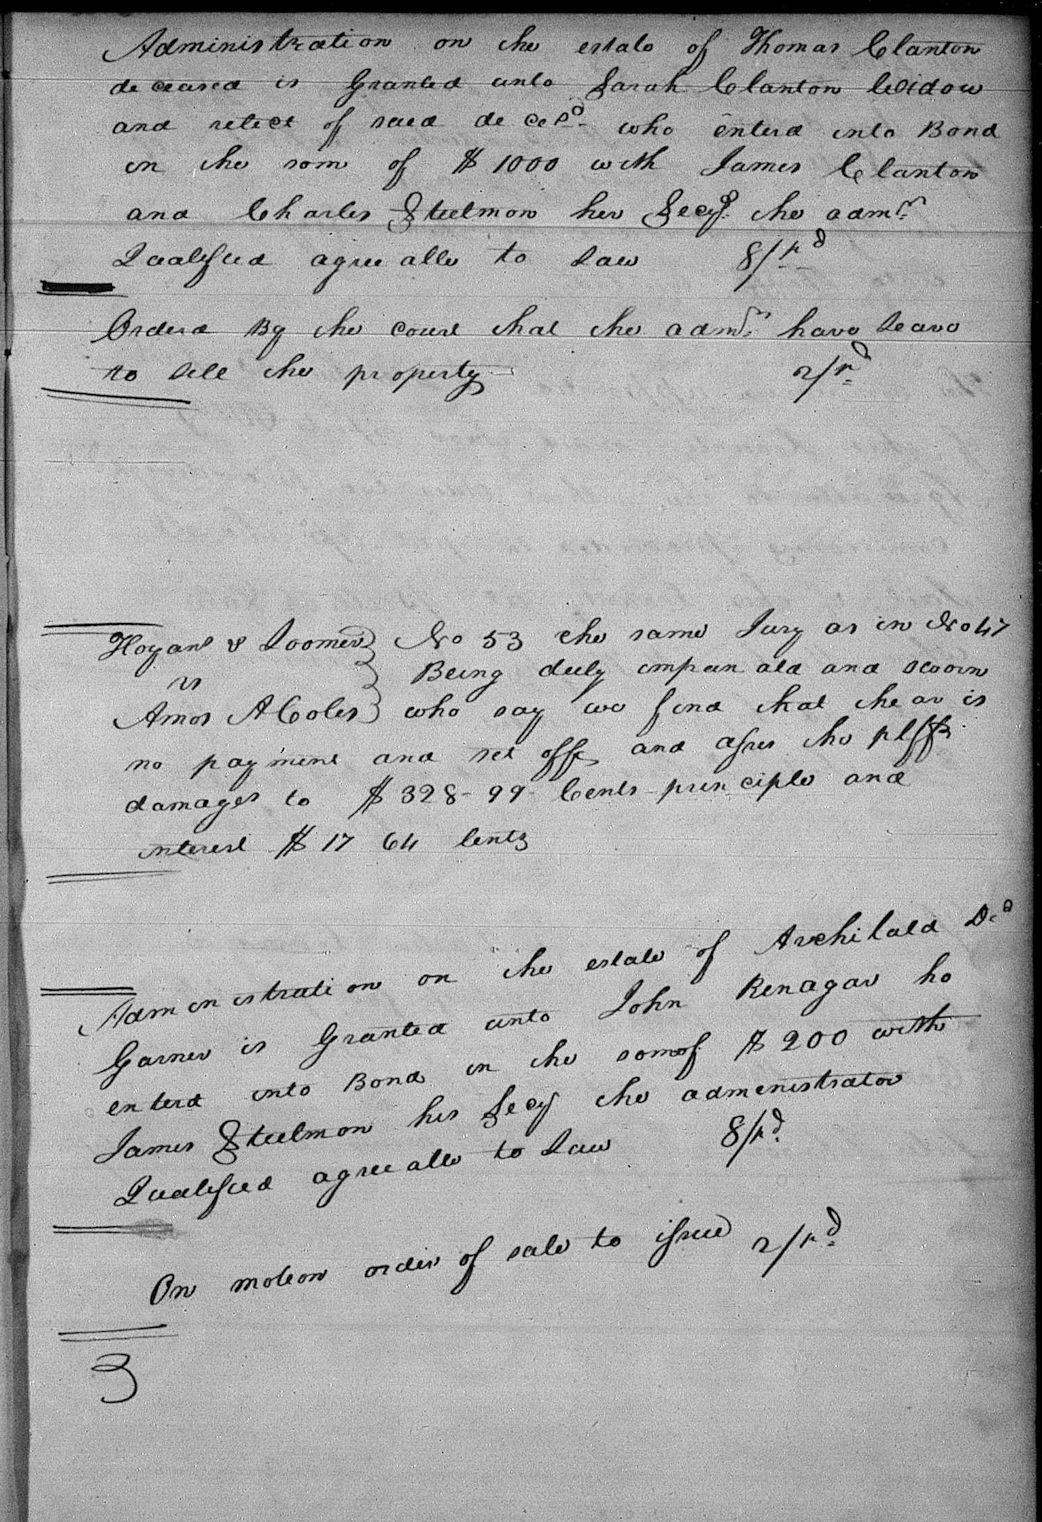 Administration on the estate of Thomas Clanton
deceased is Granted unto Sarah Clanton Widow
and relect of said decesd who enterd into Bond
in the som of $ 1000 with James Clanton
and Charles Steelmon her Secy. the admr.
Qualified agreeable to Law 8/pd
Orderd By the court that the admr. have Leave
to Sell the property 2/pd
Hogan & Loomer No 53 the same Jury as in No 47
vs Being duly impanald and sworn
Amos A Coles who say we find that thear is
no payment and set off and asses the plffs
damages to $ 328-99 Cents principle and
interest $ 17 64 Cents
Administration on the estate of Archibald Dcd
Garner is Granted unto John Renagar ho
enterd into Bond in the som of $ 200 with
James Steelmon his Secy the administrator
Qualified agreeable to Law 8/pd.
On motion order of sale to issue 2/pd.
3